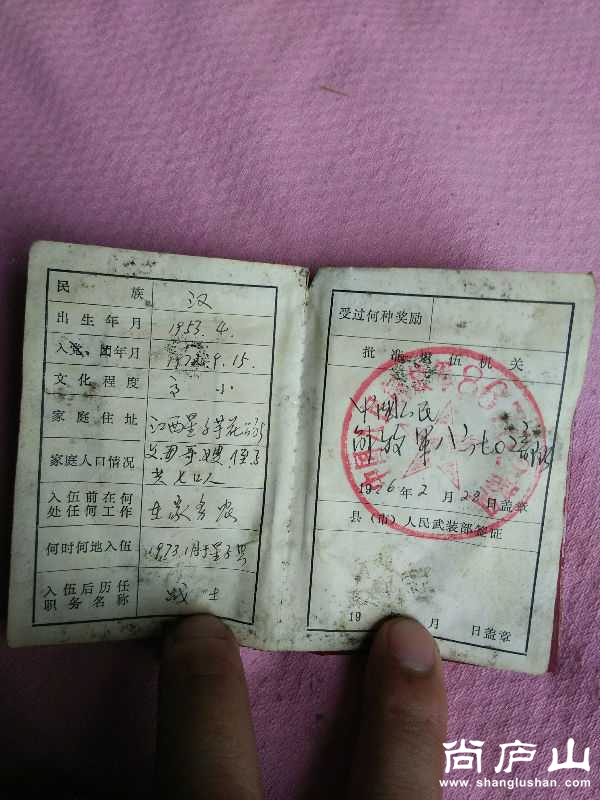 民族 汉
出生年月 1953.4.
入党、团年月 9.15.
文化程度 高小
家庭住址 江西星子
家庭人口情况 父母哥嫂侄子
共七口人
入伍前在何处任何工作 在家务农
何时何地入伍 1973.1月于星子县
入伍后历任职务名称 战士
受过何种奖励
批准退伍机关
中国人民
解放军八六七〇部队
1976年2月28日盖章
县（市）人民武装部签证
19 月 日盖章
尚庐山
www.shanglushan.com